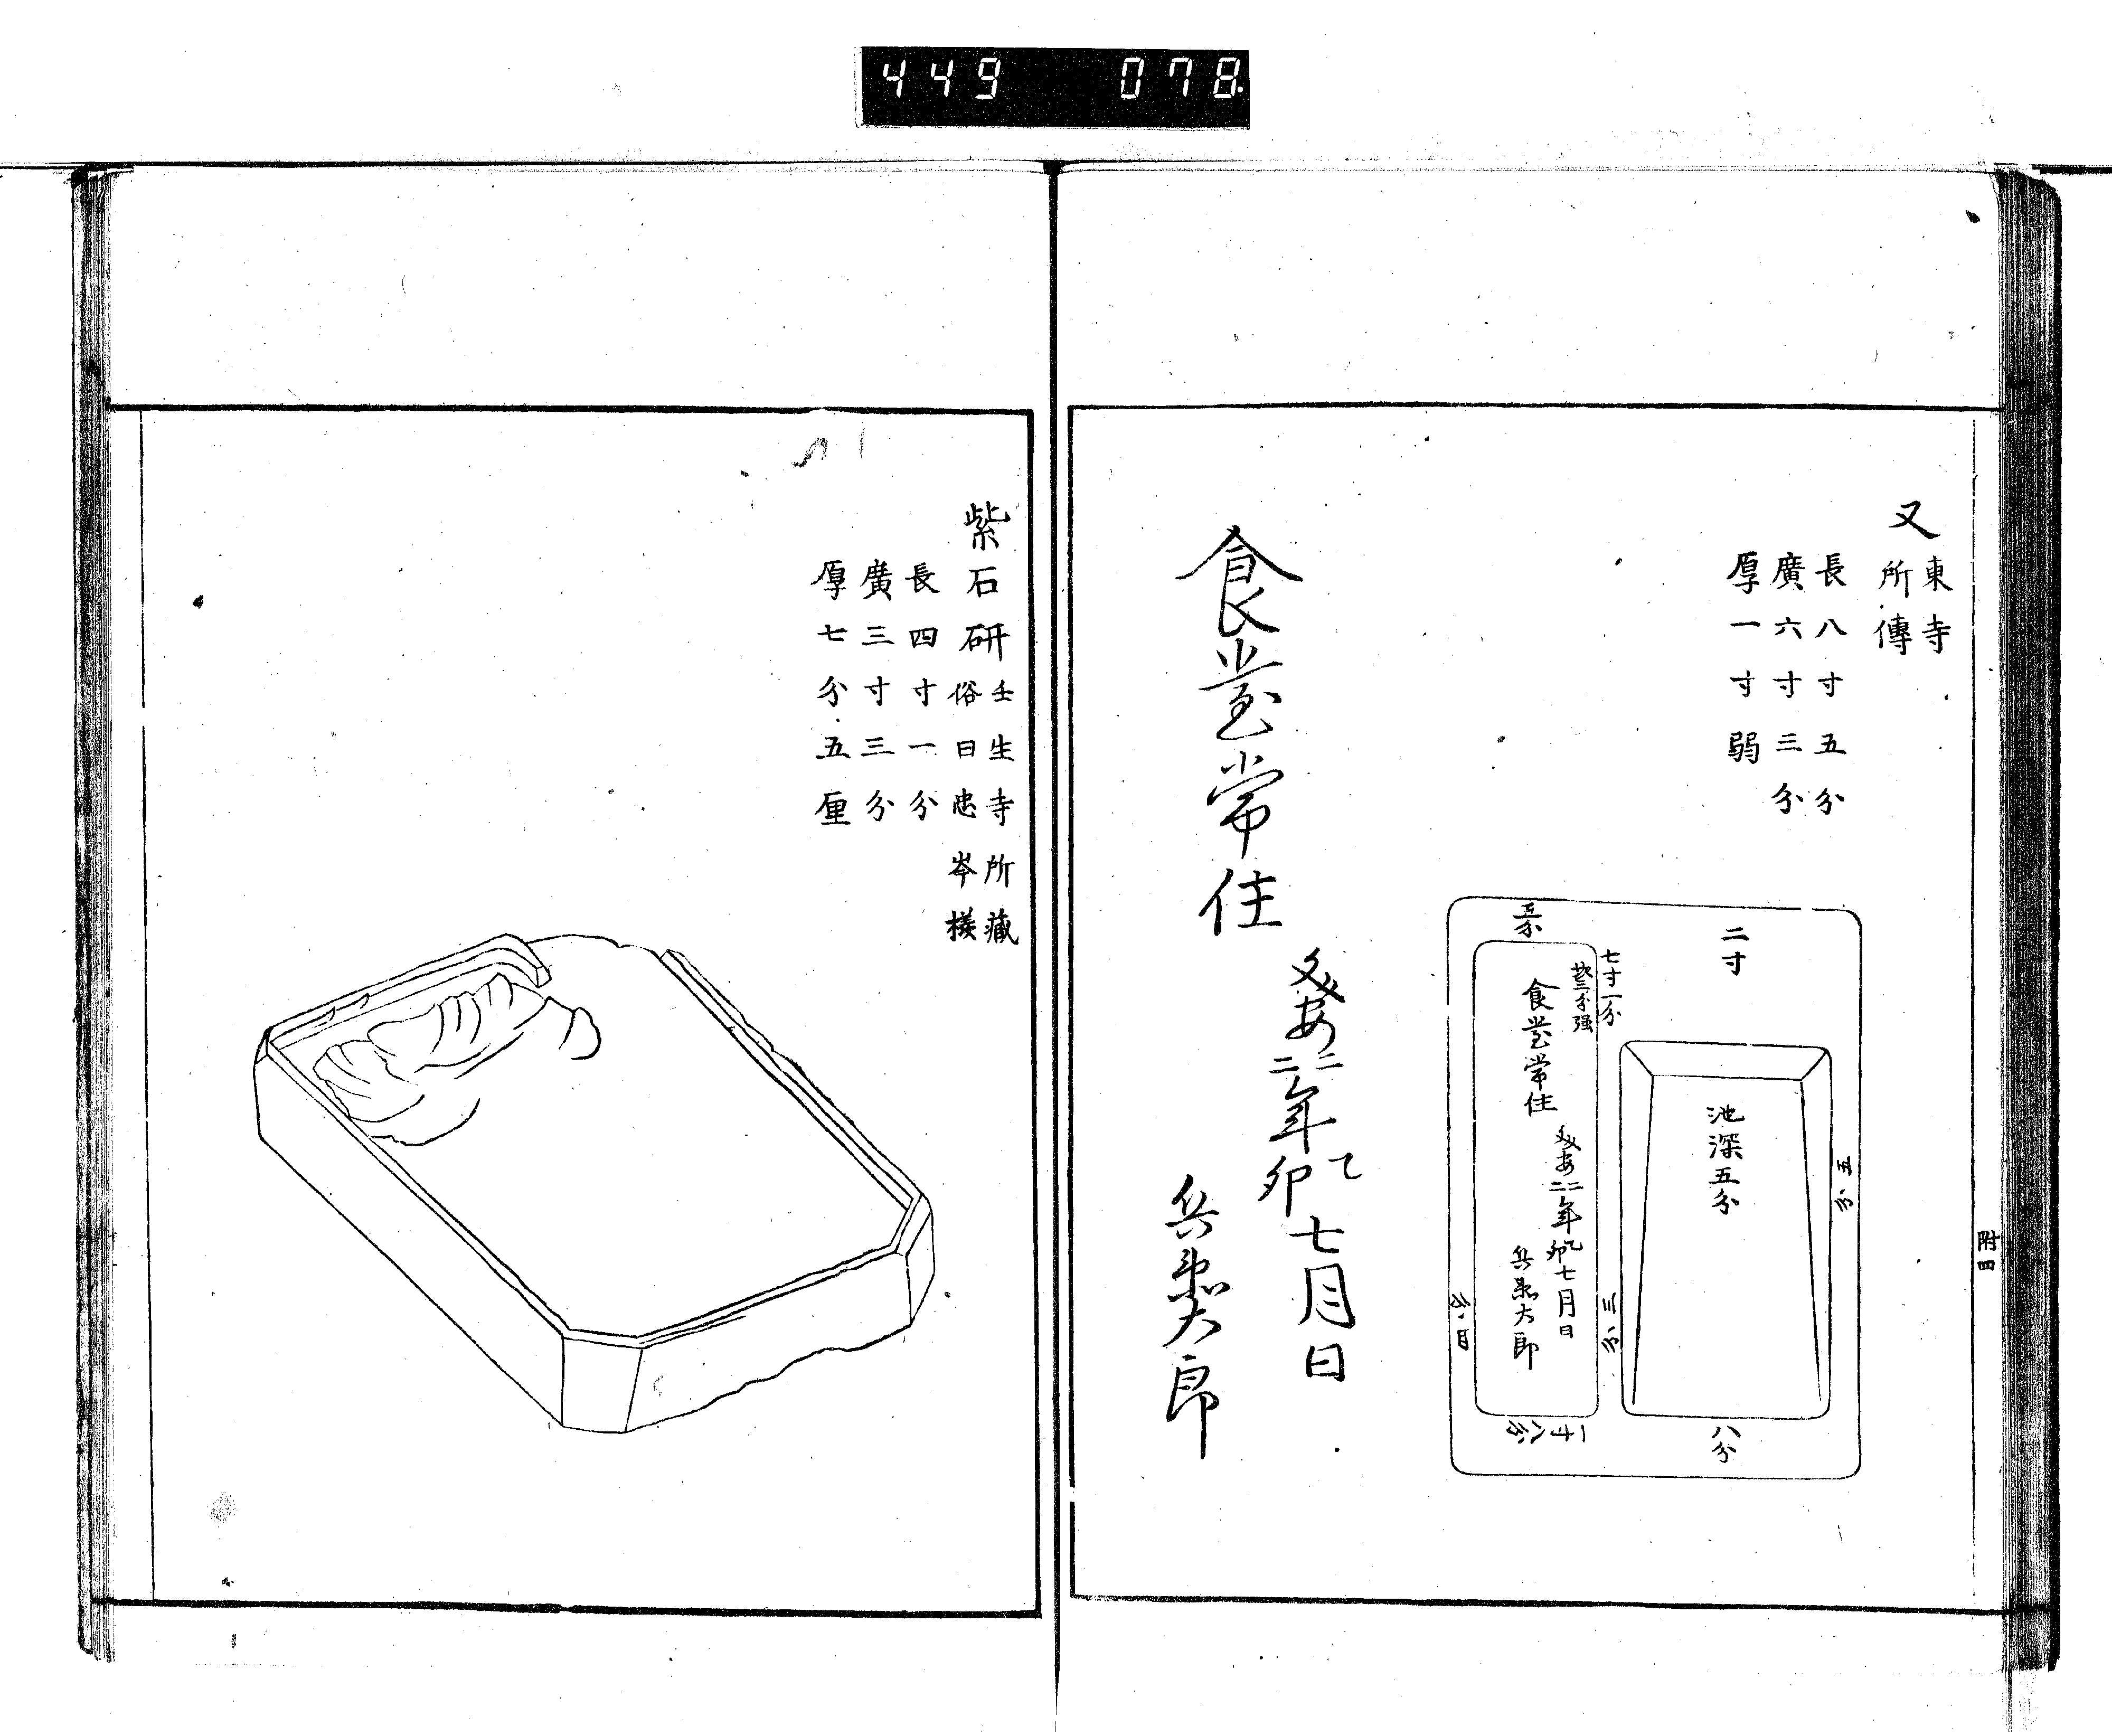 449 078
又 東寺
所傳
長八寸五分
廣六寸三分
厚一寸弱
二寸
池深五分
五分
八分
七寸一分
深三分強
食堂常住
応安二二年乙卯七月日
兵衛大郎
三分
一寸八分
四分
食堂常住
応安二二年乙卯七月日
兵衛大郎
附四
紫石研 壬生寺所藏
俗曰忠岑様
長四寸一分
廣三寸三分
厚七分五厘